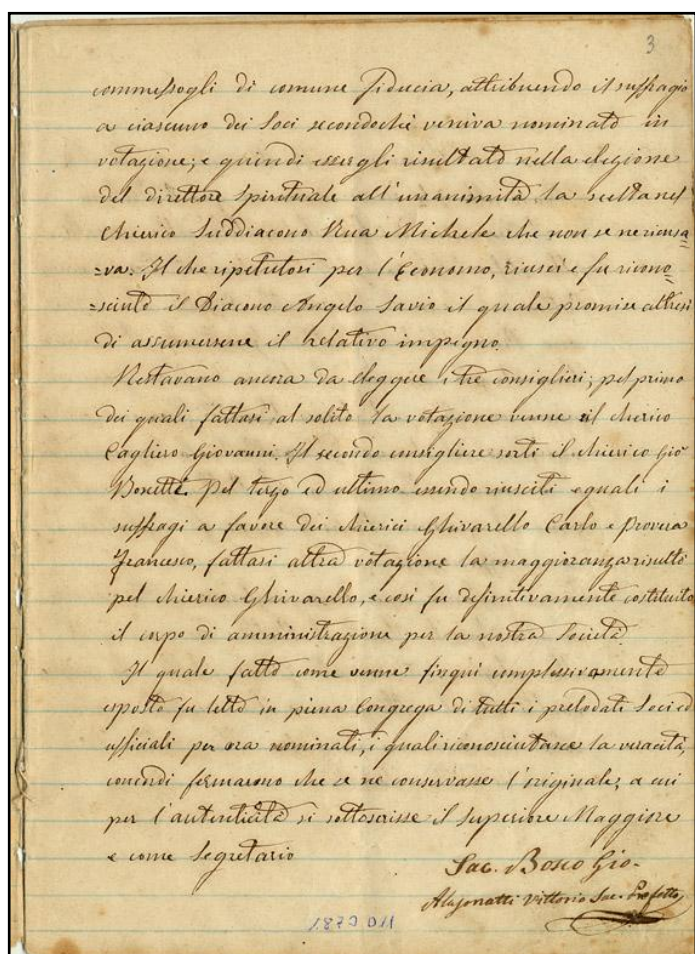 3
commessogli di comune fiducia, attribuendo il suffragio
a ciascuno dei Soci secondochè veniva nominato in
votazione; e quindi essergli risultato nella elezione
del direttore Spirituale all'unanimità la scelta nel
Chierico Suddiacono Rua Michele che non se ne ricusa
=va. Il che ripetutosi per l'Economo, riuscì e fu ricono
=sciuto il Diacono Angelo Savio il quale promise altresì
di assumersene il relativo impegno.
Restavano ancora da eleggere i tre consiglieri; pel primo
dei quali fattasi al solito la votazione venne il chierico
Cagliero Giovanni. Il secondo consigliere sortì il chierico Gio
Bonetti. Pel terzo ed ultimo essendo riusciti eguali i
suffragi a favore dei chierici Ghivarello Carlo e Provera
Francesco, fattasi altra votazione la maggioranza risultò
pel chierico Ghivarello, e così fu definitivamente costituito
il corpo di amministrazione per la nostra Società.
Il quale fatto come venne finqui complessivamente
esposto fu letto in piena Congrega di tutti i prelodati Soci ed
ufficiali per ora nominati, i quali riconosciutane la veracità,
concordi fermarono che se ne conservasse l'originale, a cui
per l'autenticità si sottoscrisse il Superiore Maggiore
e come Segretario
Sac. Bosco Gio.
Alasonatti Vittorio Sac. Prefetto